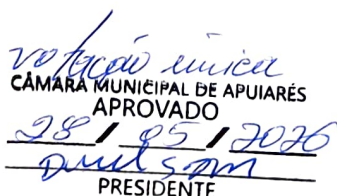 votação única
CÂMARA MUNICIPAL DE APUIARÉS
APROVADO
28 / 05 / 2026
PRESIDENTE